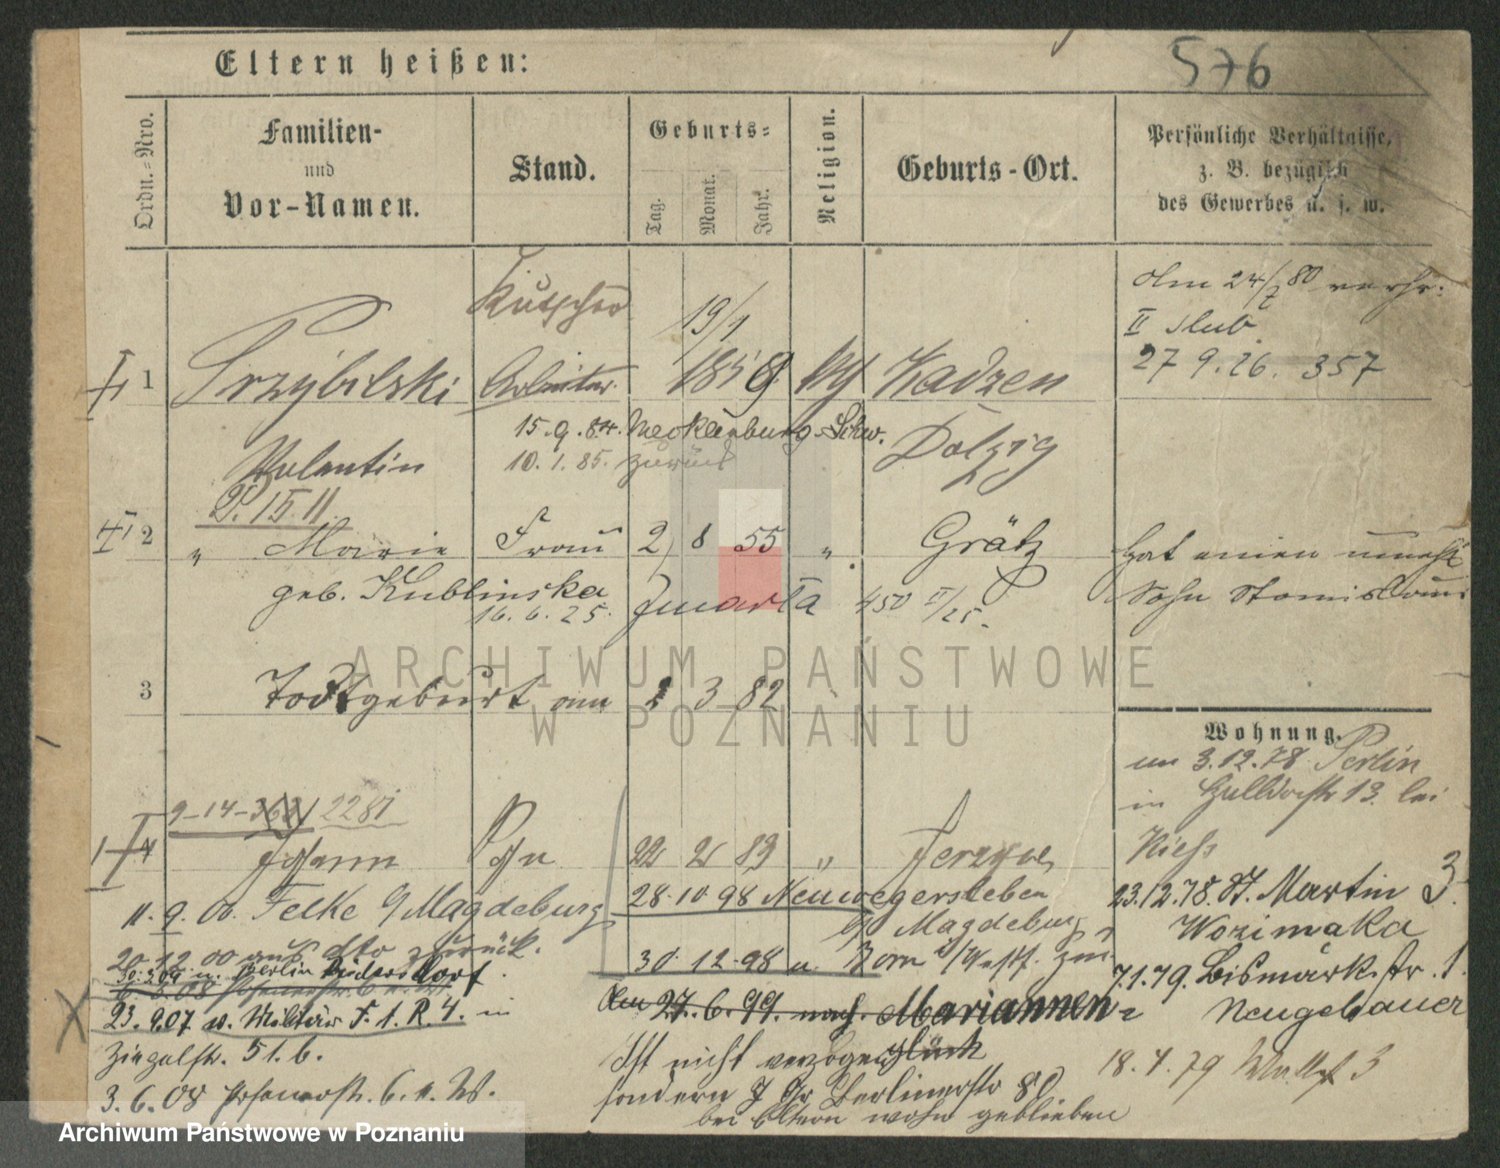 576
Eltern heißen:
Ordn.-Nro.
Familien-
und
Vor-Namen.
Stand.
Geburts-
Tag.
Monat.
Jahr.
Religion.
Geburts-Ort.
Persönliche Verhältnisse,
z. B. bezüglich
des Gewerbes u. s. w.
24/7 80 verh.
II
27 9. 26. 357
Kutscher
19/1
1 Przybilski Arbeiter 1859 Kadzen
15. 9. 84. Mecklenburg-Schw.
Valentin 10. 1. 85. zurück Dolzig
P. 15. 11
2 " Marie Frau 2 8 55 " Grätz Hat einen unehl
geb. Kublinska Sohn Stanislaus
16. 6. 25. Jmarta 450 II/25.
3 Todtgeburt am 1 3 82
Wohnung.
am 3.12.78 Berlin
in 13. bei
9-14-363 2281
4 Johann Sohn 22 2 83 " Jerzyce
28. 10 98 Neuwegersleben
23.12.78. Martin 3
11. 9. 00. Felke b/Magdeburg
b/ Magdeburg
Worimaka
20.12.00 aus dto zurück.
30. 12. 98 u.
7.1.79. Bismarckstr. 1.
30.3.04 u. Berlin Rüdersdorf
6. 6. 08
27. 6. 99. nach Mariannen-
Neugebauer
23. 9.07 v. Militär F. 1. R. 4. in
Ziegelstr. 51. b.
Ist nicht verzogen
18. 4. 79 3
3. 6. 08 Posenerstr. 6. b. W.
sondern Berlinerstr 80
bei Eltern wohn geblieben
ARCHIWUM PAŃSTWOWE
W POZNANIU
Archiwum Państwowe w Poznaniu